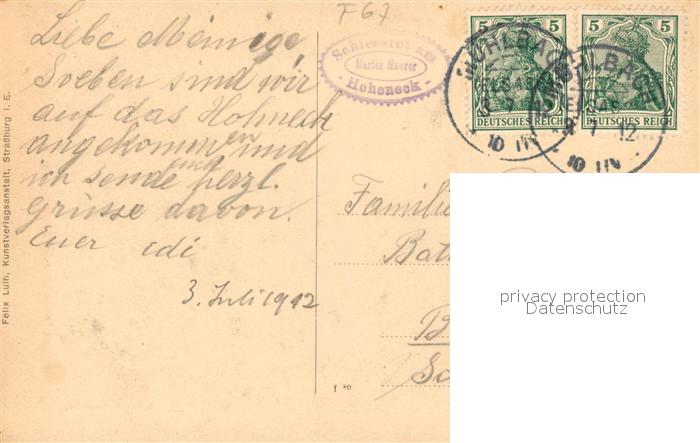 F67
Liebe Meinige
Soeben sind wir
auf das Hohneck
angekommen und
ich sende euch herzl.
Grüsse davon.
Euer Edi
3. Juli 1912
Martin Maurer
- Hoheneck -
5 5
5 5
DEUTSCHES REICH
DEUTSCHES REICH
MÜHLBACH
MÜHLBACH
12
10 11 N
Famili
B
Felix Luib, Kunstverlagsanstalt, Straßburg i. E.
privacy protection
Datenschutz